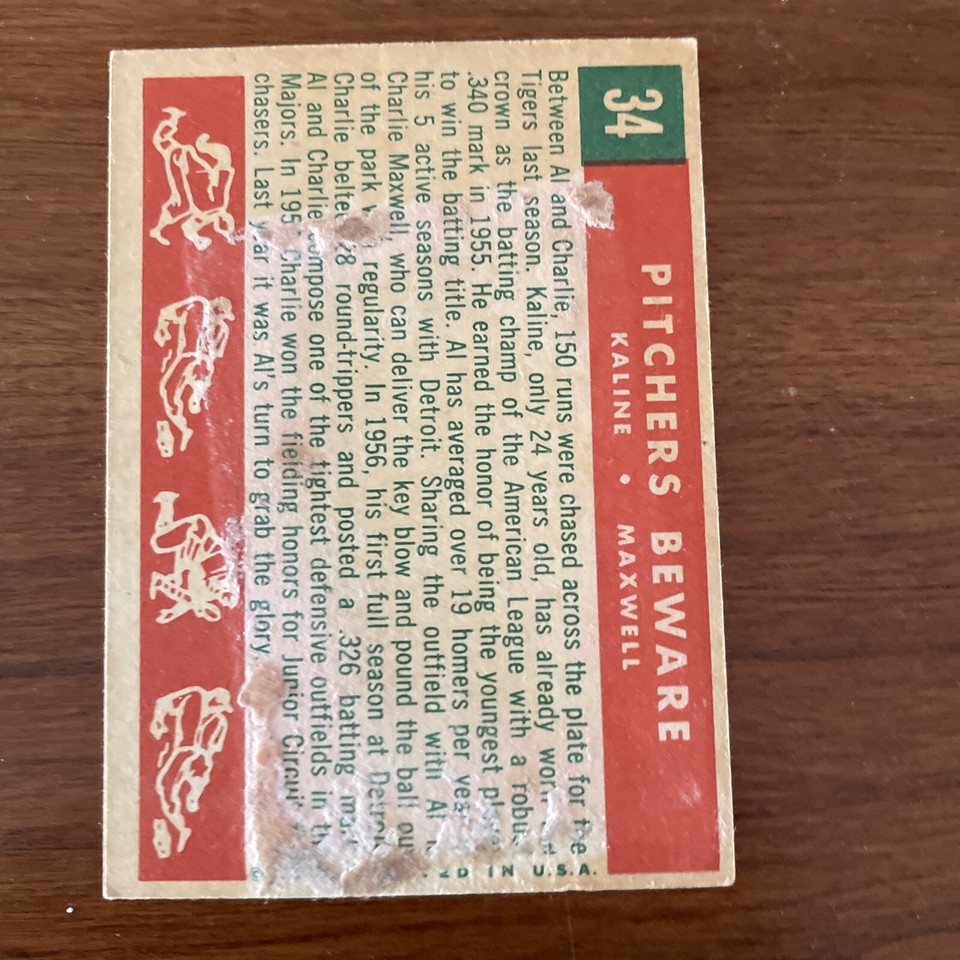 34
PITCHERS BEWARE
KALINE • MAXWELL
Between Al and Charlie, 150 runs were chased across the plate for the
Tigers last season. Kaline, only 24 years old, has already won
crown as the batting champ of the American League with a
.340 mark in 1955. He earned the honor of being the youngest
to win the batting title. Al has averaged over 19 homers per
his 5 active seasons with Detroit. Sharing the outfield with Al
Charlie Maxwell, who can deliver the key blow and pound the ball
of the park regularity. In 1956, his first full season at
Charlie round-trippers and posted a .326 batting
Al and Charlie one of the tightest defensive outfields in
Majors. In Charlie won the fielding honors for Junior
chasers. Last year it was Al's turn to grab the glory
© IN U.S.A.